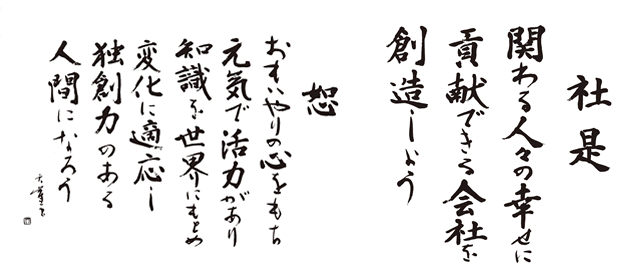 社是
関わる人々の幸せに
貢献できる会社を
創造しよう
恕
おもいやりの心をもち
元気で活力があり
知識を世界にもとめ
変化に適応し
独創力のある
人間になろう